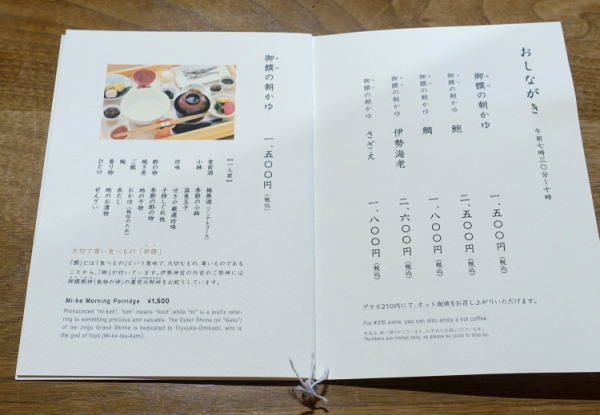 おしながき
午前七時三〇分〜十時
御饌の朝かゆ 一、五〇〇円(税込)
御饌の朝かゆ 鮑 二、五〇〇円(税込)
御饌の朝かゆ 鯛 一、八〇〇円(税込)
御饌の朝かゆ 伊勢海老 二、六〇〇円(税込)
御饌の朝かゆ さざえ 一、八〇〇円(税込)
プラス210円にて、ホット珈琲をお召し上がりいただけます。
For ¥210 extra, you can also enjoy a hot coffee.
*Numbers are limited daily, so please be quick to stop by.
御饌の朝かゆ 一、五〇〇円(税込)
【一人前】
食前酒 梅酢酒(ノンアルコール)
小鉢 季節の小鉢
珍味 せきや厳選珍味
子持しぐれ他
酢の物 季節の酢の物
焼き魚 地の干物
ご飯 おかゆ
椀 赤だし
香り物 地のお漬物
ひと口 ぜんざい
大切で尊い食べもの「御饌」
「饌」とは「食べもの」という意味で、大切なもの、尊いものであることから、「御」が付いています。伊勢神宮の外宮のご祭神には
Mi-ke Morning Porridge ¥1,500
Pronounced "mi-keh", "keh" means "food" while "mi" is a prefix refer-
ring to something precious and valuable. The Outer Shrine (or "Geku")
of Ise Jingu Grand Shrine is dedicated to Toyouke-Omikami, who is
the god of food (Mi-ke-tsu-kami).